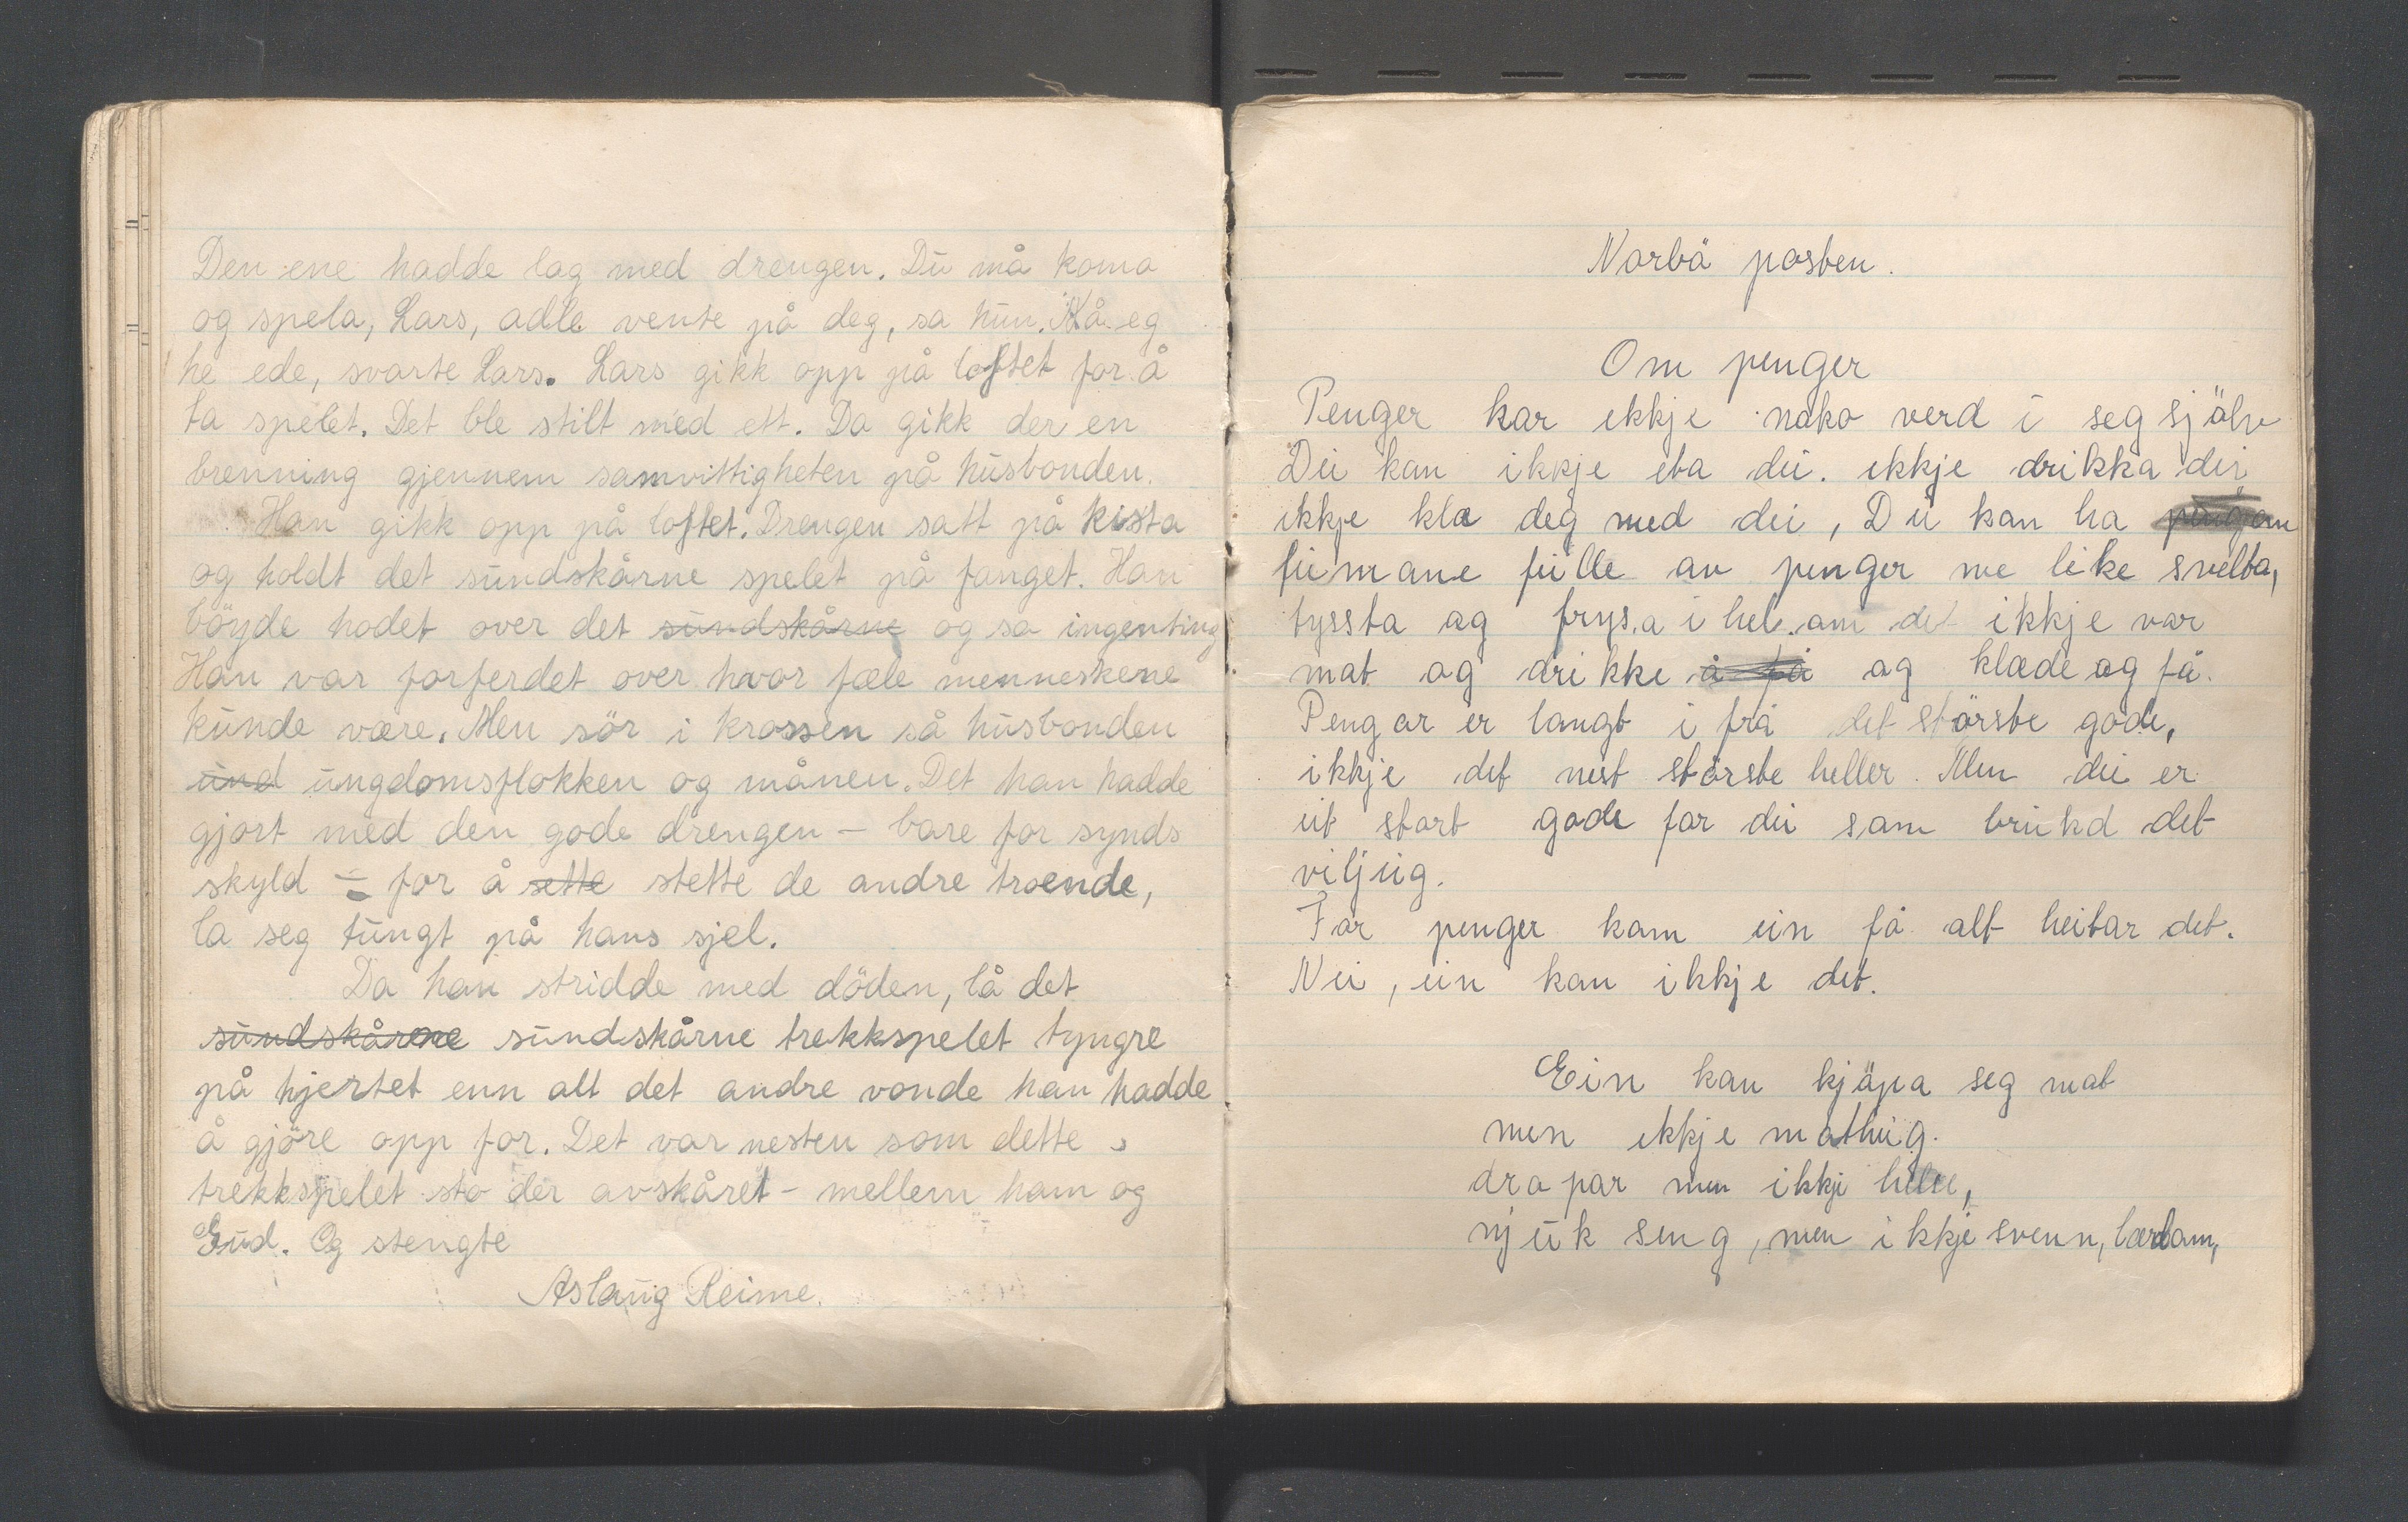 Den ene hadde lag med drengen. Dū må koma
og spela, Lars, adle vente på deg, sa hūn. Nå eg
he ede, svarte Lars. Lars gikk opp på loftet for å
ta spelet. Det ble stilt med ett. Da gikk der en
brenning gjennem samvittigheten på hūsbonden.
Han gikk opp på loftet. Drengen satt på kista
og holdt det sūndskårne spelet på fanget. Han
böyde hodet over det sūndskårne og sa ingenting
Han var forferdet over hvor fæle menneskene
kūnde være. Men sör i krossen så hūsbonden
ūnd ūngdomsflokken og månen. Det han hadde
gjort med den gode drengen – bare for synds
skyld – for å sette stette de andre troende,
la seg tūngt på hans sjel.
Da han stridde med döden, lå det
sūndskårene sūndskårne trekkspelet tyngre
på hjertet enn alt det andre vonde han hadde
å gjöre opp for. Det var nesten som dette
trekkspelet sto der avskåret – mellem ham og
Gūd. Og stengte
Aslaūg Reime.
Norbö posten.
Om penger
Penger har ikkje noko verd i seg sjölv
Dei kan ikkje eta dei. ikkje drikka dei
ikkje kla deg med dei, Dū kan ha
fūmane fūlle av penger me like svelta,
tyssta og frysa i hel. om det ikkje var
mat og drikke å få og klæde og få.
Pengar er langt i frå det störste gode,
ikkje det nest störste heller. Men dei er
eit stort gode for dei som brūkd det
viljūg.
For penger kam ein få alt heitar det.
Nei, ein kan ikkje det.
Ein kan kjöpa seg mat
men ikkje mathūg.
dropar men ikkje helse,
mjūk seng, men ikkje svenn, lærdom,